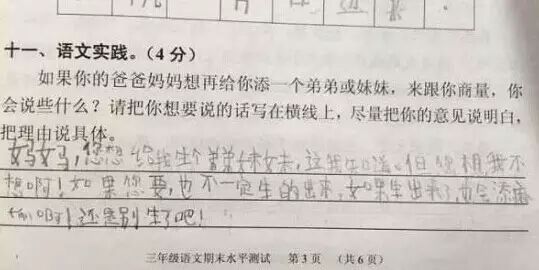 十一、语文实践。(4分)
如果你的爸爸妈妈想再给你添一个弟弟或妹妹，来跟你商量，你
会说些什么？请把你想要说的话写在横线上，尽量把你的意见说明白，
把理由说具体。
妈妈，您想给我生个弟弟妹妹，这我知道。但你想我不
想啊！如果您要，也不一定生的出来，如果生出来了，也会添麻
烦啊！还是别生了吧！
三年级语文期末水平测试 第3页 (共6页)